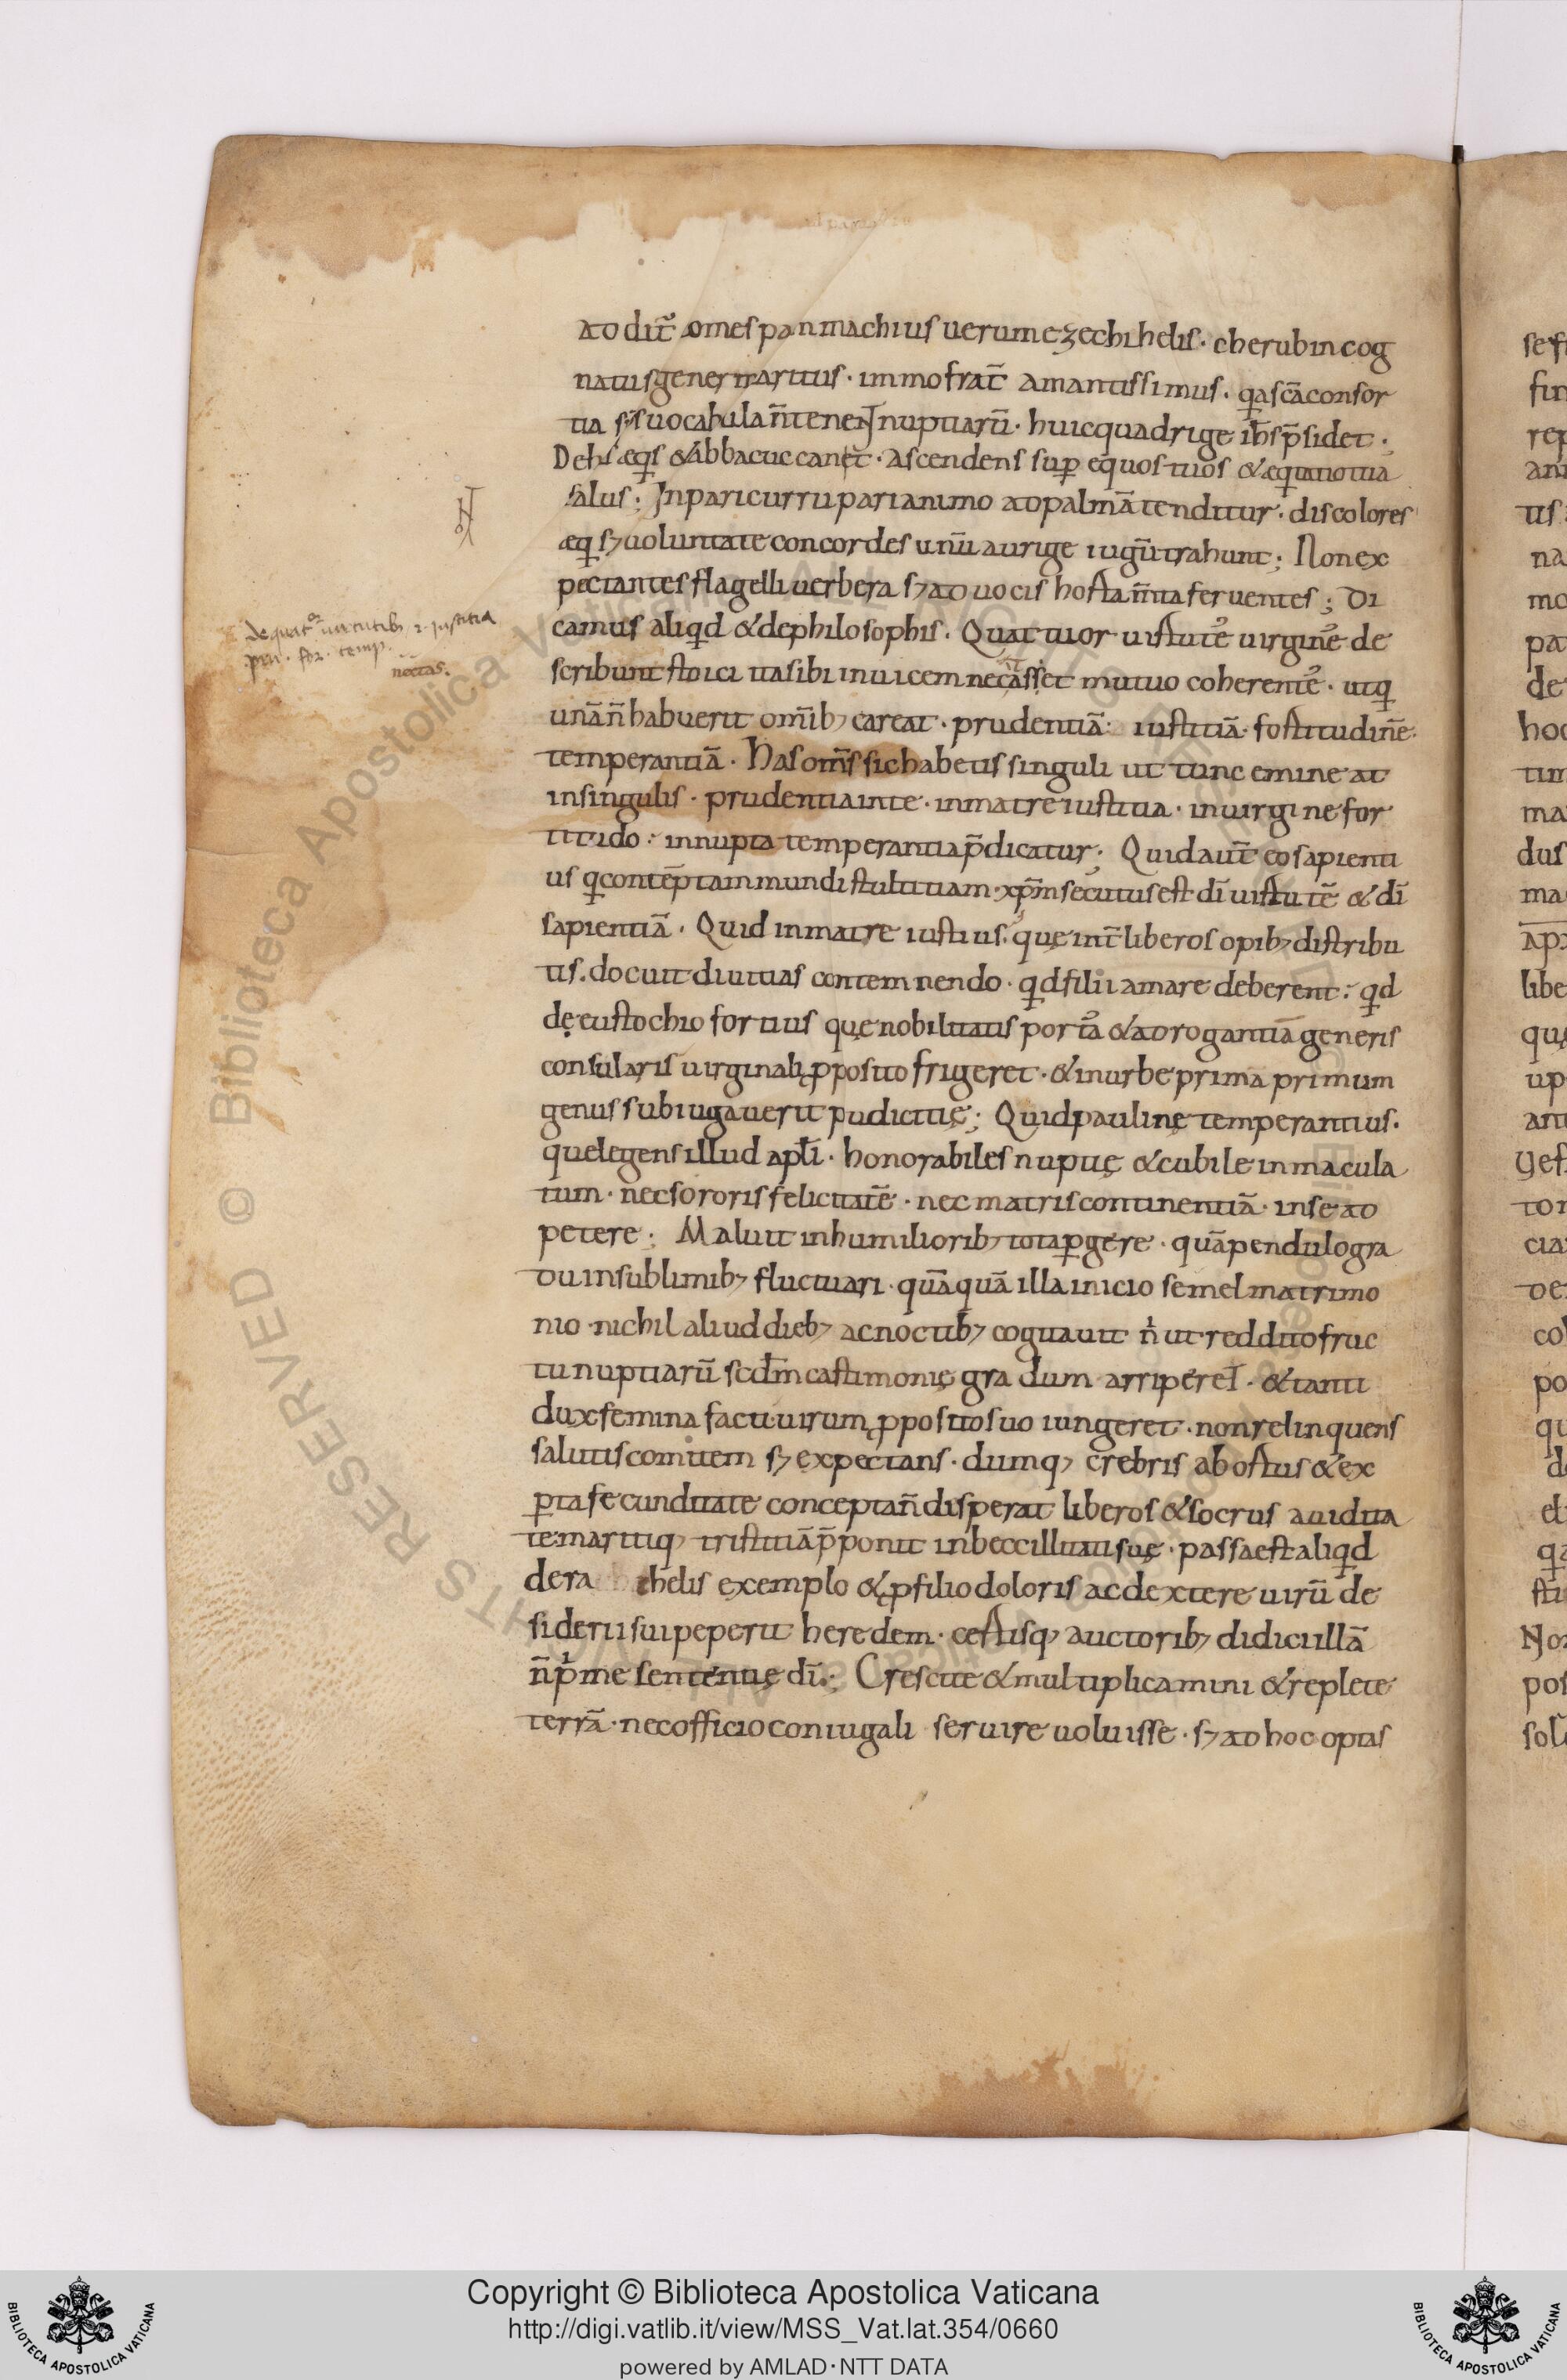 ad dit̃ omes panmachius uerum ezechihelis · cherubin cog
natus gener maritus · immo frat̃ amantissimus · q̃a sc̃a consor
tia sp̃s uocabula ñ tenent nuptiarũ · huic quadrige ih̃s p̃sidet ·
De his eq̃s & abbacuc canet · ascendens sup̱ equos tuos & equitatio tua
salus ; In pari curru pari animo ad palmã tenditur · discolores
æq̃ sꝫ uoluntate concordes unũ aurige iugũ trahunt ; Non ex
pectantes flagelli uerbera sꝫ ad uocis hortam̃ta feruentes ; Di
camus aliq̃d & de philosophis · Quattuor uirtutẽ uirginẽ de
scribunt stoici ita sibi inuicem necãsset mutuo coherentẽ · ut q̃
unã ñ habuerit om̃ibꝫ careat · prudentiã · iustitiã · fortitudiñe ·
temperantiã · Has om̃s sic habetis singuli ut tunc emineat
in singulis · prudentia in te · in matre iustitia · in uirgine for
titudo · in nupta temperantia p̃dicatur ; Quid aut̃ eo sapienti
us q̃ contẽptam mundi stultitiam · xp̃m secutus est dĩ uirtutẽ & dĩ
sapientiã · Quid in matre iustius · quę int̃ liberos opibꝫ distribu
tis · docuit diuitias contemnendo · q̃d filii amare deberent · q̃d
dę eustochio fortius quę nobilitatis portã & adrogantiã generis
consularis uirginali ꝓposito frigeret · & in urbe prima primum
genus subiugauerit pudicitię ; Quid paulinę temperantius ·
que legens illud apl̃i · honorabiles nuptię & cubile inmacula
tum · nec sororis felicitatẽ · nec matris continentiã · in se ad
petere ; Maluit in humilioribꝫ tota p̱gere · quã pendulo gra
du in sublimibꝫ fluctuari · quãquã illa inicio semel matrimo
nio · nichil aliud diebꝫ ac noctibꝫ cogitauit ñ ut reddito fruc
tu nuptiarũ scdm̃ castimonię gradum arriperet · & tanti
dux femina facti uirum ꝓposito suo iungeret · non relinquens
salutis comitem sꝫ expectans · dumqꝫ crebris abortus & ex
p̱ta fecunditate conceptã ñ disperat liberos & socrus auidita
te maritiqꝫ tristitiã p̃ponit inbeccillitati suę · passa est aliq̃d
de ra chelis exemplo & ꝓ filio doloris ac dextere uirũ de
siderii sui peperit heredem · certisqꝫ auctoribꝫ didici illã
ñ p̃me sententię dĩ ; Crescite & multiplicamini & replete
terrã · nec officio coniugali seruire uoluisse · sꝫ ad hoc optas
de quat̃or uirtutibꝫ · i · iustitia
pru · for · temp ·
Copyright © Biblioteca Apostolica Vaticana
http://digi.vatlib.it/view/MSS_Vat.lat.354/0660
powered by AMLAD·NTT DATA
BIBLIOTECA APOSTOLICA VATICANA
BIBLIOTECA APOSTOLICA VATICANA